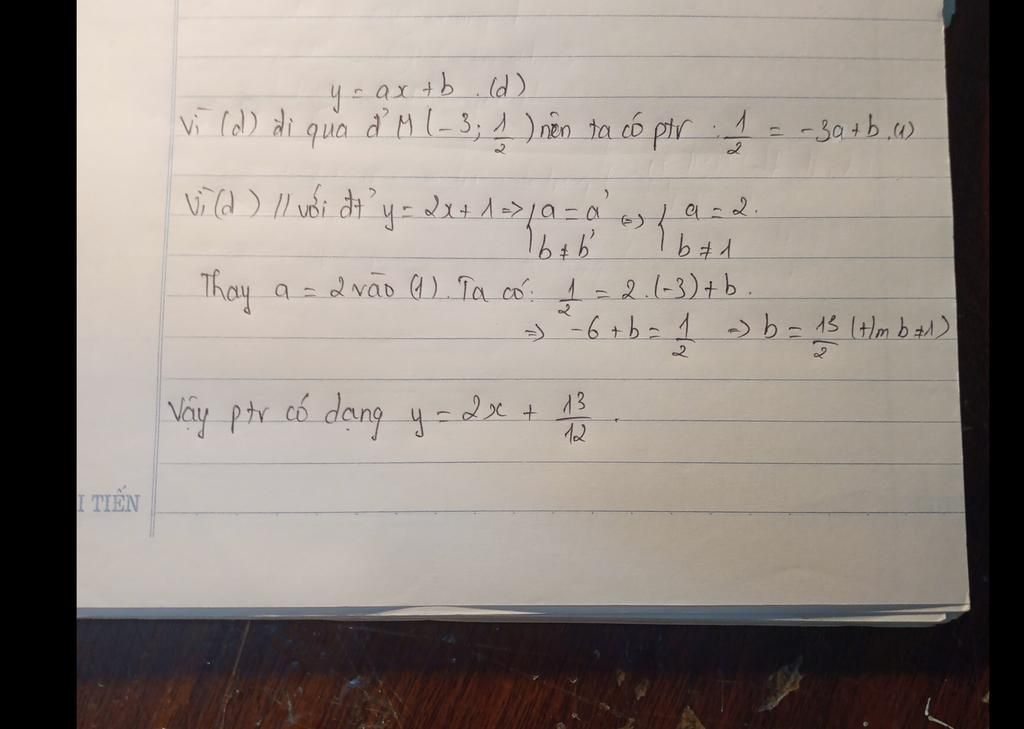 y = ax + b . (d)
Vì (d) đi qua đ' M (-3; 1/2) nên ta có ptr : 1/2 = -3a + b . (1)
Vì (d) // với đt' y = 2x + 1 => { a = a' <=> { a = 2.
b ≠ b' b ≠ 1
Thay a = 2 vào (1). Ta có: 1/2 = 2.(-3) + b.
=> -6 + b = 1/2 => b = 13/2 (t/m b ≠ 1)
Vậy ptr có dạng y = 2x + 13/12 .
I TIẾN